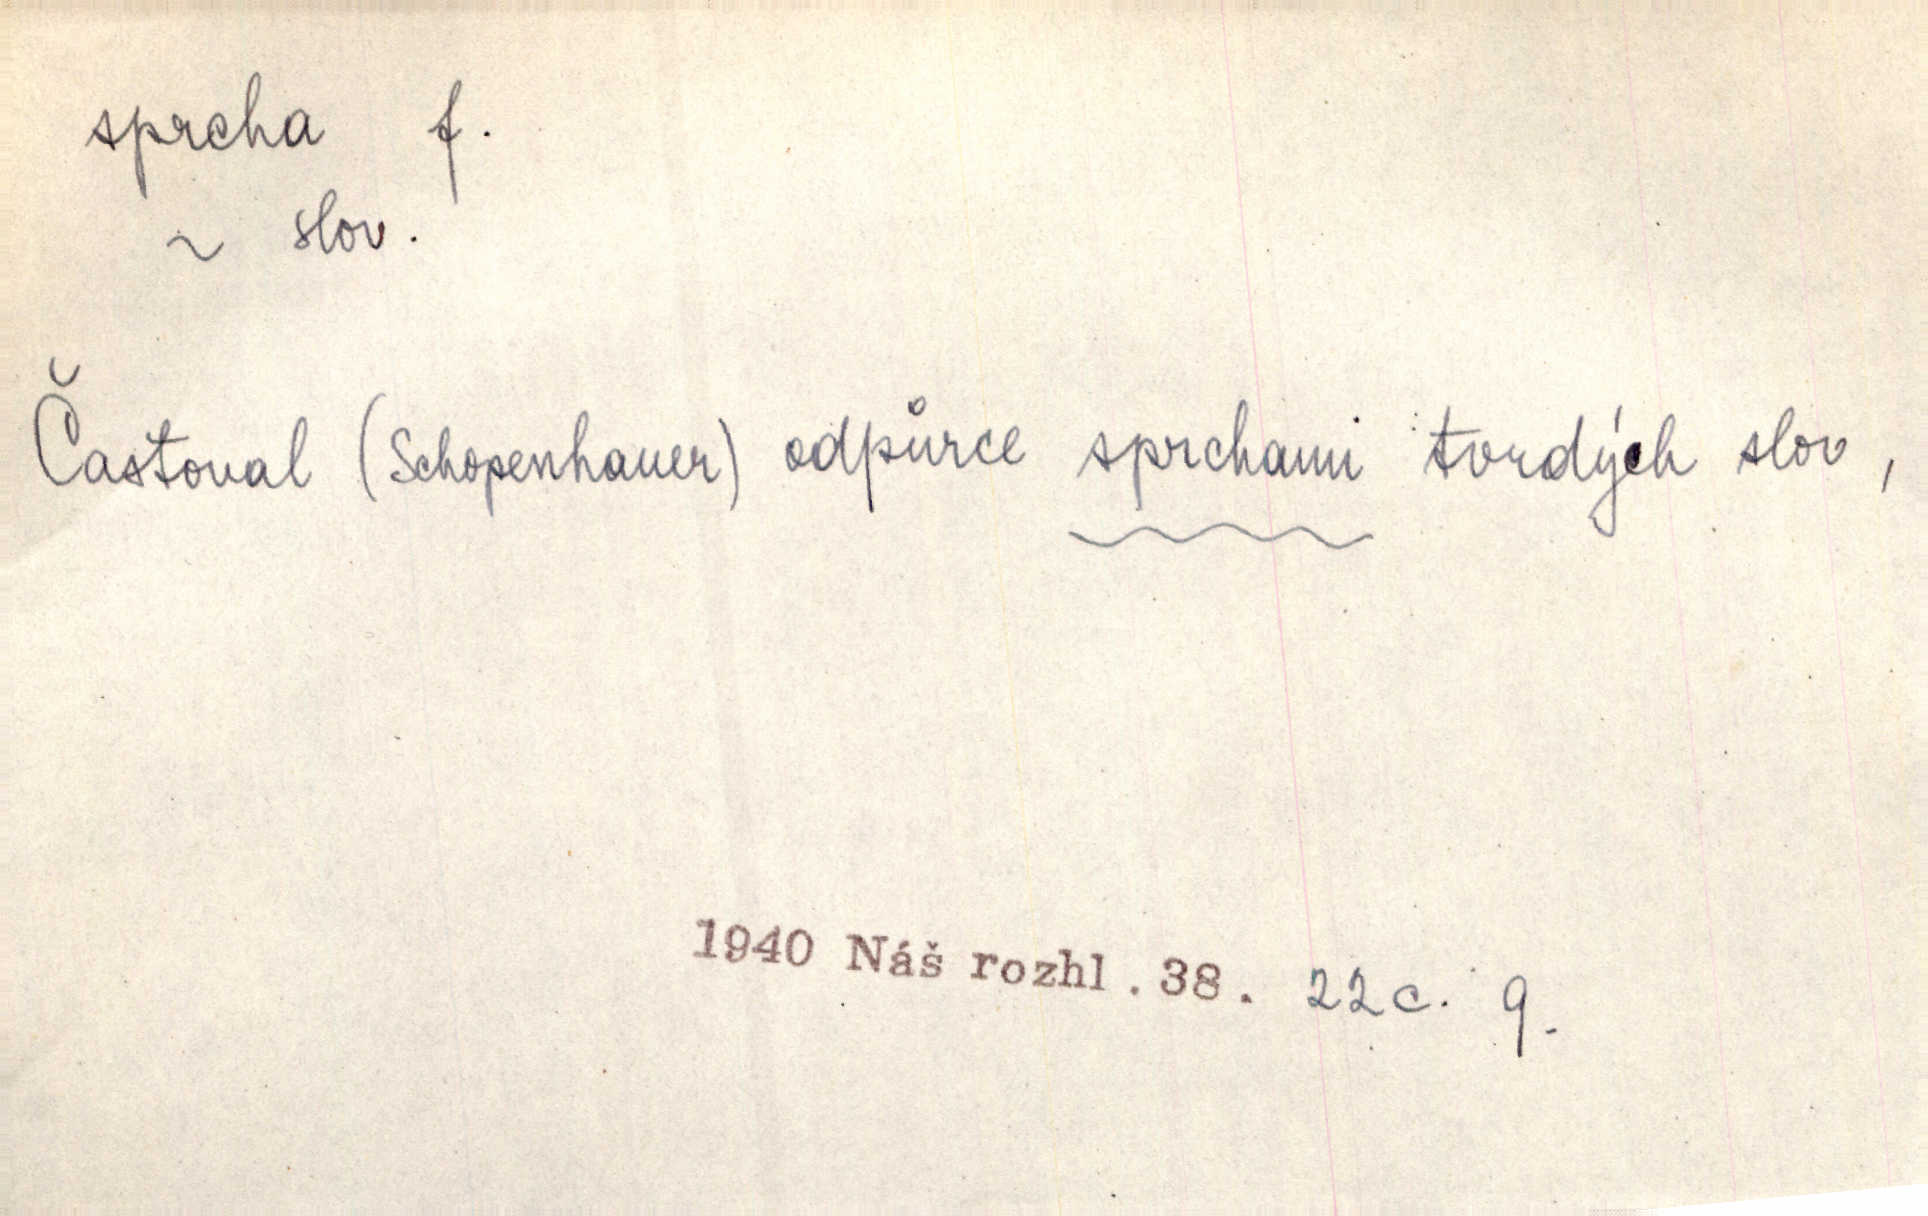 sprcha f.
~ slov.
Častoval (Schopenhauer) odpůrce sprchami tvrdých slov,
1940 Náš rozhl. 38. 22c. 9.